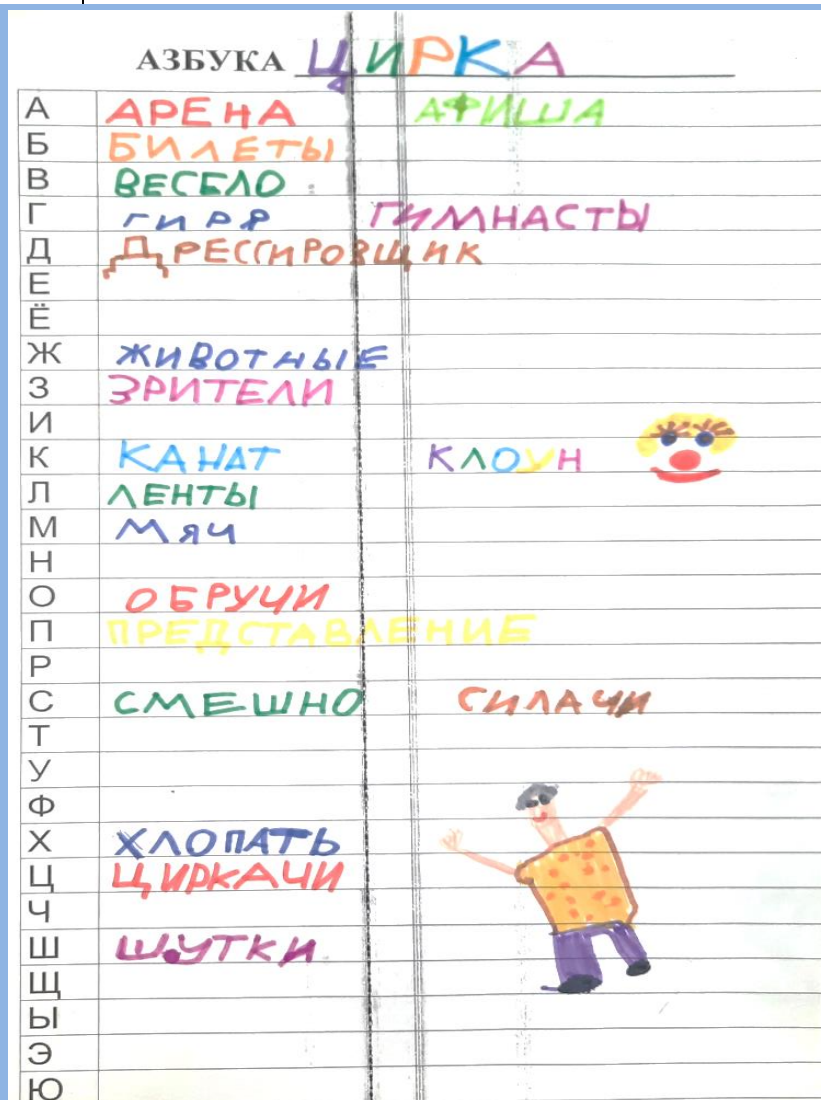 АЗБУКА ЦИРКА
А АРЕНА АФИША
Б БИЛЕТЫ
В ВЕСЕЛО
Г ГИРЯ ГИМНАСТЫ
Д ДРЕССИРОВЩИК
Е
Ё
Ж ЖИВОТНЫЕ
З ЗРИТЕЛИ
И
К КАНАТ КЛОУН
Л ЛЕНТЫ
М МЯЧ
Н
О ОБРУЧИ
П ПРЕДСТАВЛЕНИЕ
Р
С СМЕШНО СИЛАЧИ
Т
У
Ф
Х ХЛОПАТЬ
Ц ЦИРКАЧИ
Ч
Ш ШУТКИ
Щ
Ы
Э
Ю